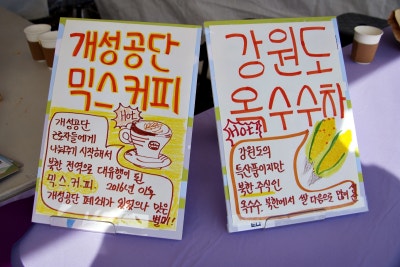 개성공단
믹스커피
HOT
개성공단
근로자들에게
나눠주기 시작해서
북한 전역으로 대유행이 된
믹스커피. 2016년 이후
개성공단 폐쇄가 됐으나 맛은
별미!
강원도
옥수수차
HOT
강원도의
특산품이지만
북한 주식인
옥수수. 북한에서 쌀 다음으로